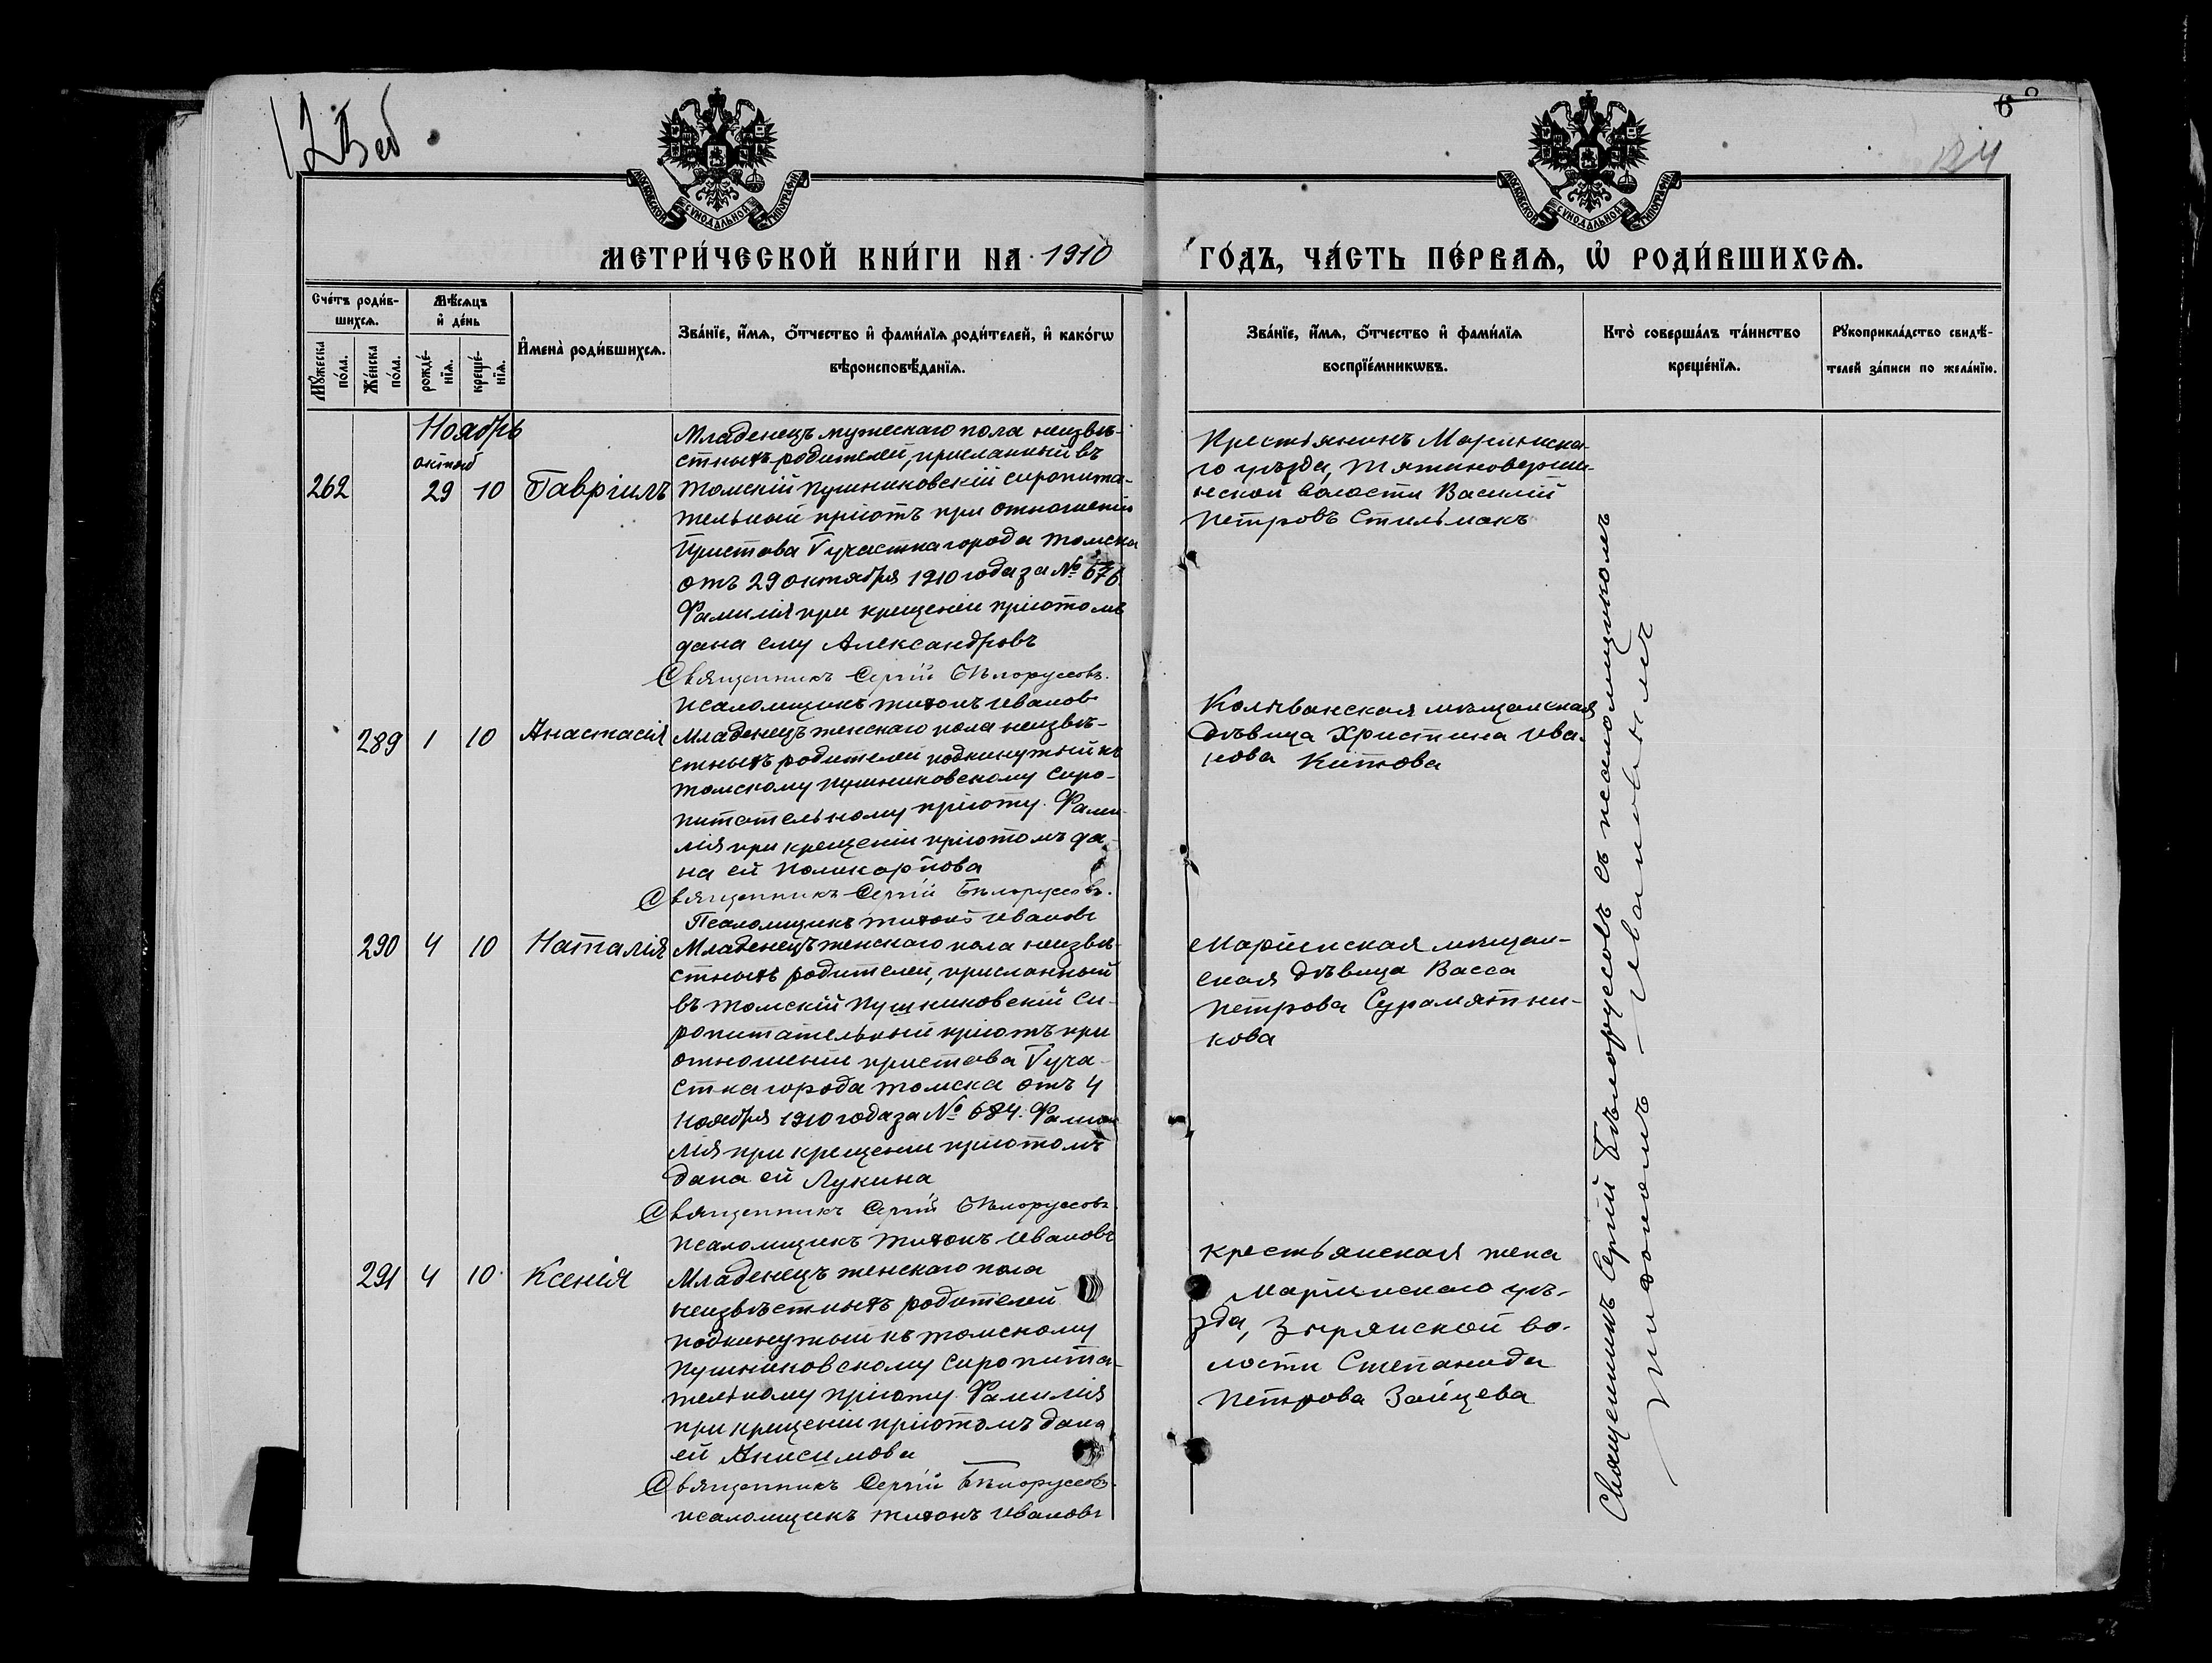 МОСКОВСКОЙ СѴНОДАЛЬНОЙ ТИПОГРАФІИ
МОСКОВСКОЙ СѴНОДАЛЬНОЙ ТИПОГРАФІИ
МЕТРИ́ЧЕСКОЙ КНИ́ГИ НА 1910
ГО́ДЪ, ЧА́СТЬ ПЕ́РВАѦ, Ѡ҆ РОДИ́ВШИХСѦ.
Сче́тъ роди́в-
шихсѧ.
Мѣ́сѧцъ
и҆ де́нь
Мꙋ́жеска
по́ла.
Же́нска
по́ла.
рожде́-
нїѧ.
креще́-
нїѧ.
И҆мена̀ роди́вшихсѧ.
Зва́нїе, и҆́мѧ, ѻ҆́тчество и҆ фами́лїѧ роди́телей, и҆ како́гѡ
вѣроисповѣ́данїѧ.
Зва́нїе, и҆́мѧ, ѻ҆́тчество и҆ фами́лїѧ
воспрїе́мникѡвъ.
Кто̀ соверша́лъ та́инство
креще́нїѧ.
Рꙋкоприкла́дство свидѣ́-
телей за́писи по жела́нїю.
Ноябрь
октяб
262 29 10 Гавріилъ
Младенецъ мужескаго пола неизвѣ-
стныхъ родителей, присланный въ
Томскій Пушниковскій сиропита-
тельный пріютъ при отношеніи
Пристава V участка города Томска
отъ 29 октября 1910 года за №
Фамилія при крещеніи пріютомъ
дана ему Александровъ
Священникъ Сергій Бѣлоруссовъ.
Псаломщикъ Тихонъ Ивановъ
Крестьянинъ Маріинска-
го уѣзда, Тяжиноверши-
нской волости Василій
Петровъ Стильмакъ
289 1 10 Анастасія
Младенецъ женскаго пола неизвѣ-
стныхъ родителей подкинутый къ
Томскому Пушниковскому сиро-
питательному пріюту. Фами-
лія при крещеніи пріютомъ да-
на ей Поликарпова
Священникъ Сергій Бѣлоруссовъ.
Псаломщикъ Тихонъ Ивановъ
Колыванская мѣщанская
дѣвица Христина Ива-
нова Китова
290 4 10 Наталія
Младенецъ женскаго пола неизвѣ-
стныхъ родителей, присланный
въ Томскій Пушниковскій си-
ропитательный пріютъ при
отношеніи пристава V уча-
стка города Томска отъ 4
Ноября 1910 года за № 684. Фами-
лія при крещеніи пріютомъ
дана ей Лукина
Священникъ Сергій Бѣлоруссовъ.
Псаломщикъ Тихонъ Ивановъ
Маріинская мѣщан-
ская дѣвица Васса
Петрова Сурамятни-
кова
291 4 10 Ксенія
Младенецъ женскаго пола
неизвѣстныхъ родителей
подкинутый къ Томскому
Пушниковскому сиропита-
тельному пріюту. Фамилія
при крещеніи пріютомъ дана
ей Анисимова
Священникъ Сергій Бѣлоруссовъ.
псаломщикъ Тихонъ Ивановъ
Крестьянская жена
Маріинскаго уѣ-
зда, Зырянской во-
лости Степанида
Петрова Зайцева
Священникъ Сергій Бѣлоруссовъ съ псаломщикомъ
Тихономъ Ивановымъ